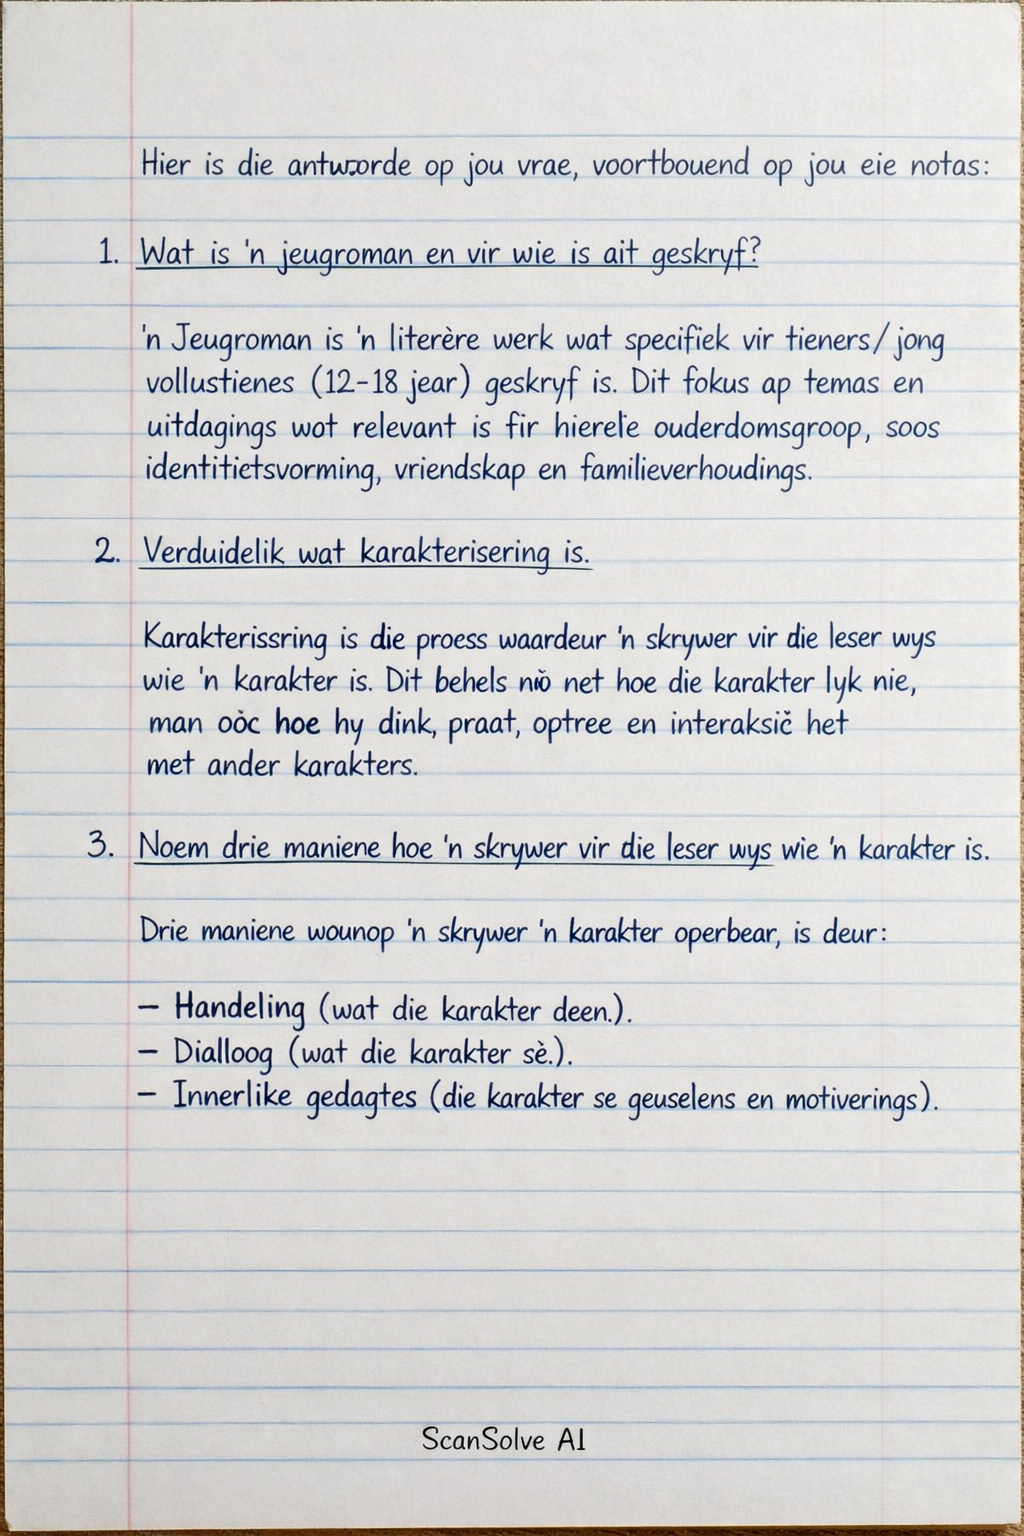 Hier is die antworde op jou vrae, voortbouend op jou eie notas:
1. Wat is 'n jeugroman en vir wie is ait geskryf?
'n Jeugroman is 'n literère werk wat specifiek vir tieners/jong
vollustienes (12-18 jear) geskryf is. Dit fokus ap temas en
uitdagings wot relevant is fir hierele ouderdomsgroop, soos
identitietsvorming, vriendskap en familieverhoudings.
2. Verduidelik wat karakterisering is.
Karakterissring is die proess waardeur 'n skrywer vir die leser wys
wie 'n karakter is. Dit behels net hoe die karakter lyk nie,
man oòc hoe hy dink, praat, optree en interaksič het
met ander karakters.
3. Noem drie maniene hoe 'n skrywer vir die leser wys wie 'n karakter is.
Drie maniene wounop 'n skrywer 'n karakter operbear, is deur:
— Handeling (wat die karakter deen.).
— Dialloog (wat die karakter sè.).
— Innerlike gedagtes (die karakter se geuselens en motiverings).
ScanSolve AI